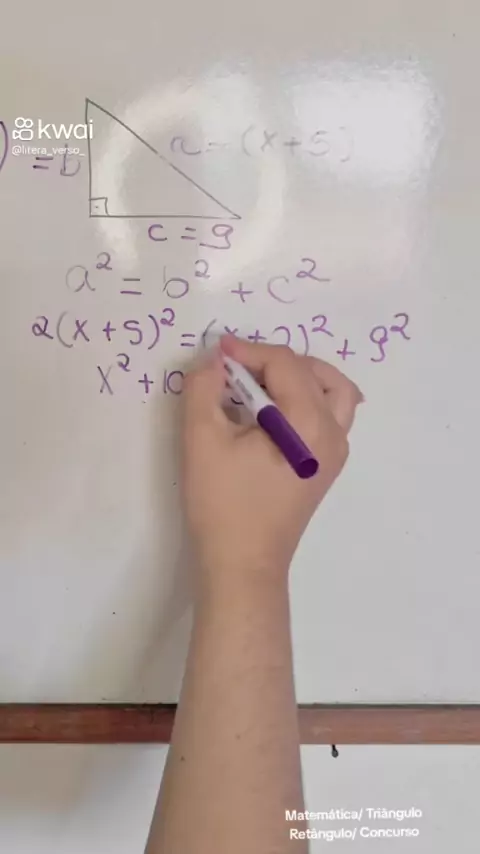 kwai
@litera_verso_
= b
a = (x+5)
c = 9
a² = b² + c²
2(x+5)² = (x+2)² + 9²
x² + 10
Matemática/ Triângulo
Retângulo/ Concurso